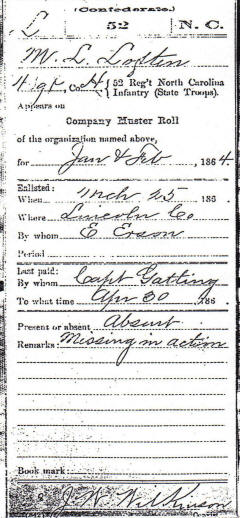 (Confederate.)
L 52 N. C.
M. L. Loftin
Co. H { 52 Reg't North Carolina
Infantry (State Troops).
Appears on
Company Muster Roll
of the organization named above,
for Jan & Feb , 1864
Enlisted:
When Mch 25 , 186 .
Where Lincoln Co
By whom E Erson
Period
Last paid:
By whom Capt Gatling
To what time Apr 30 , 186 .
Present or absent Absent
Remarks: Missing in action
Book mark:
J. W. Wilkinson